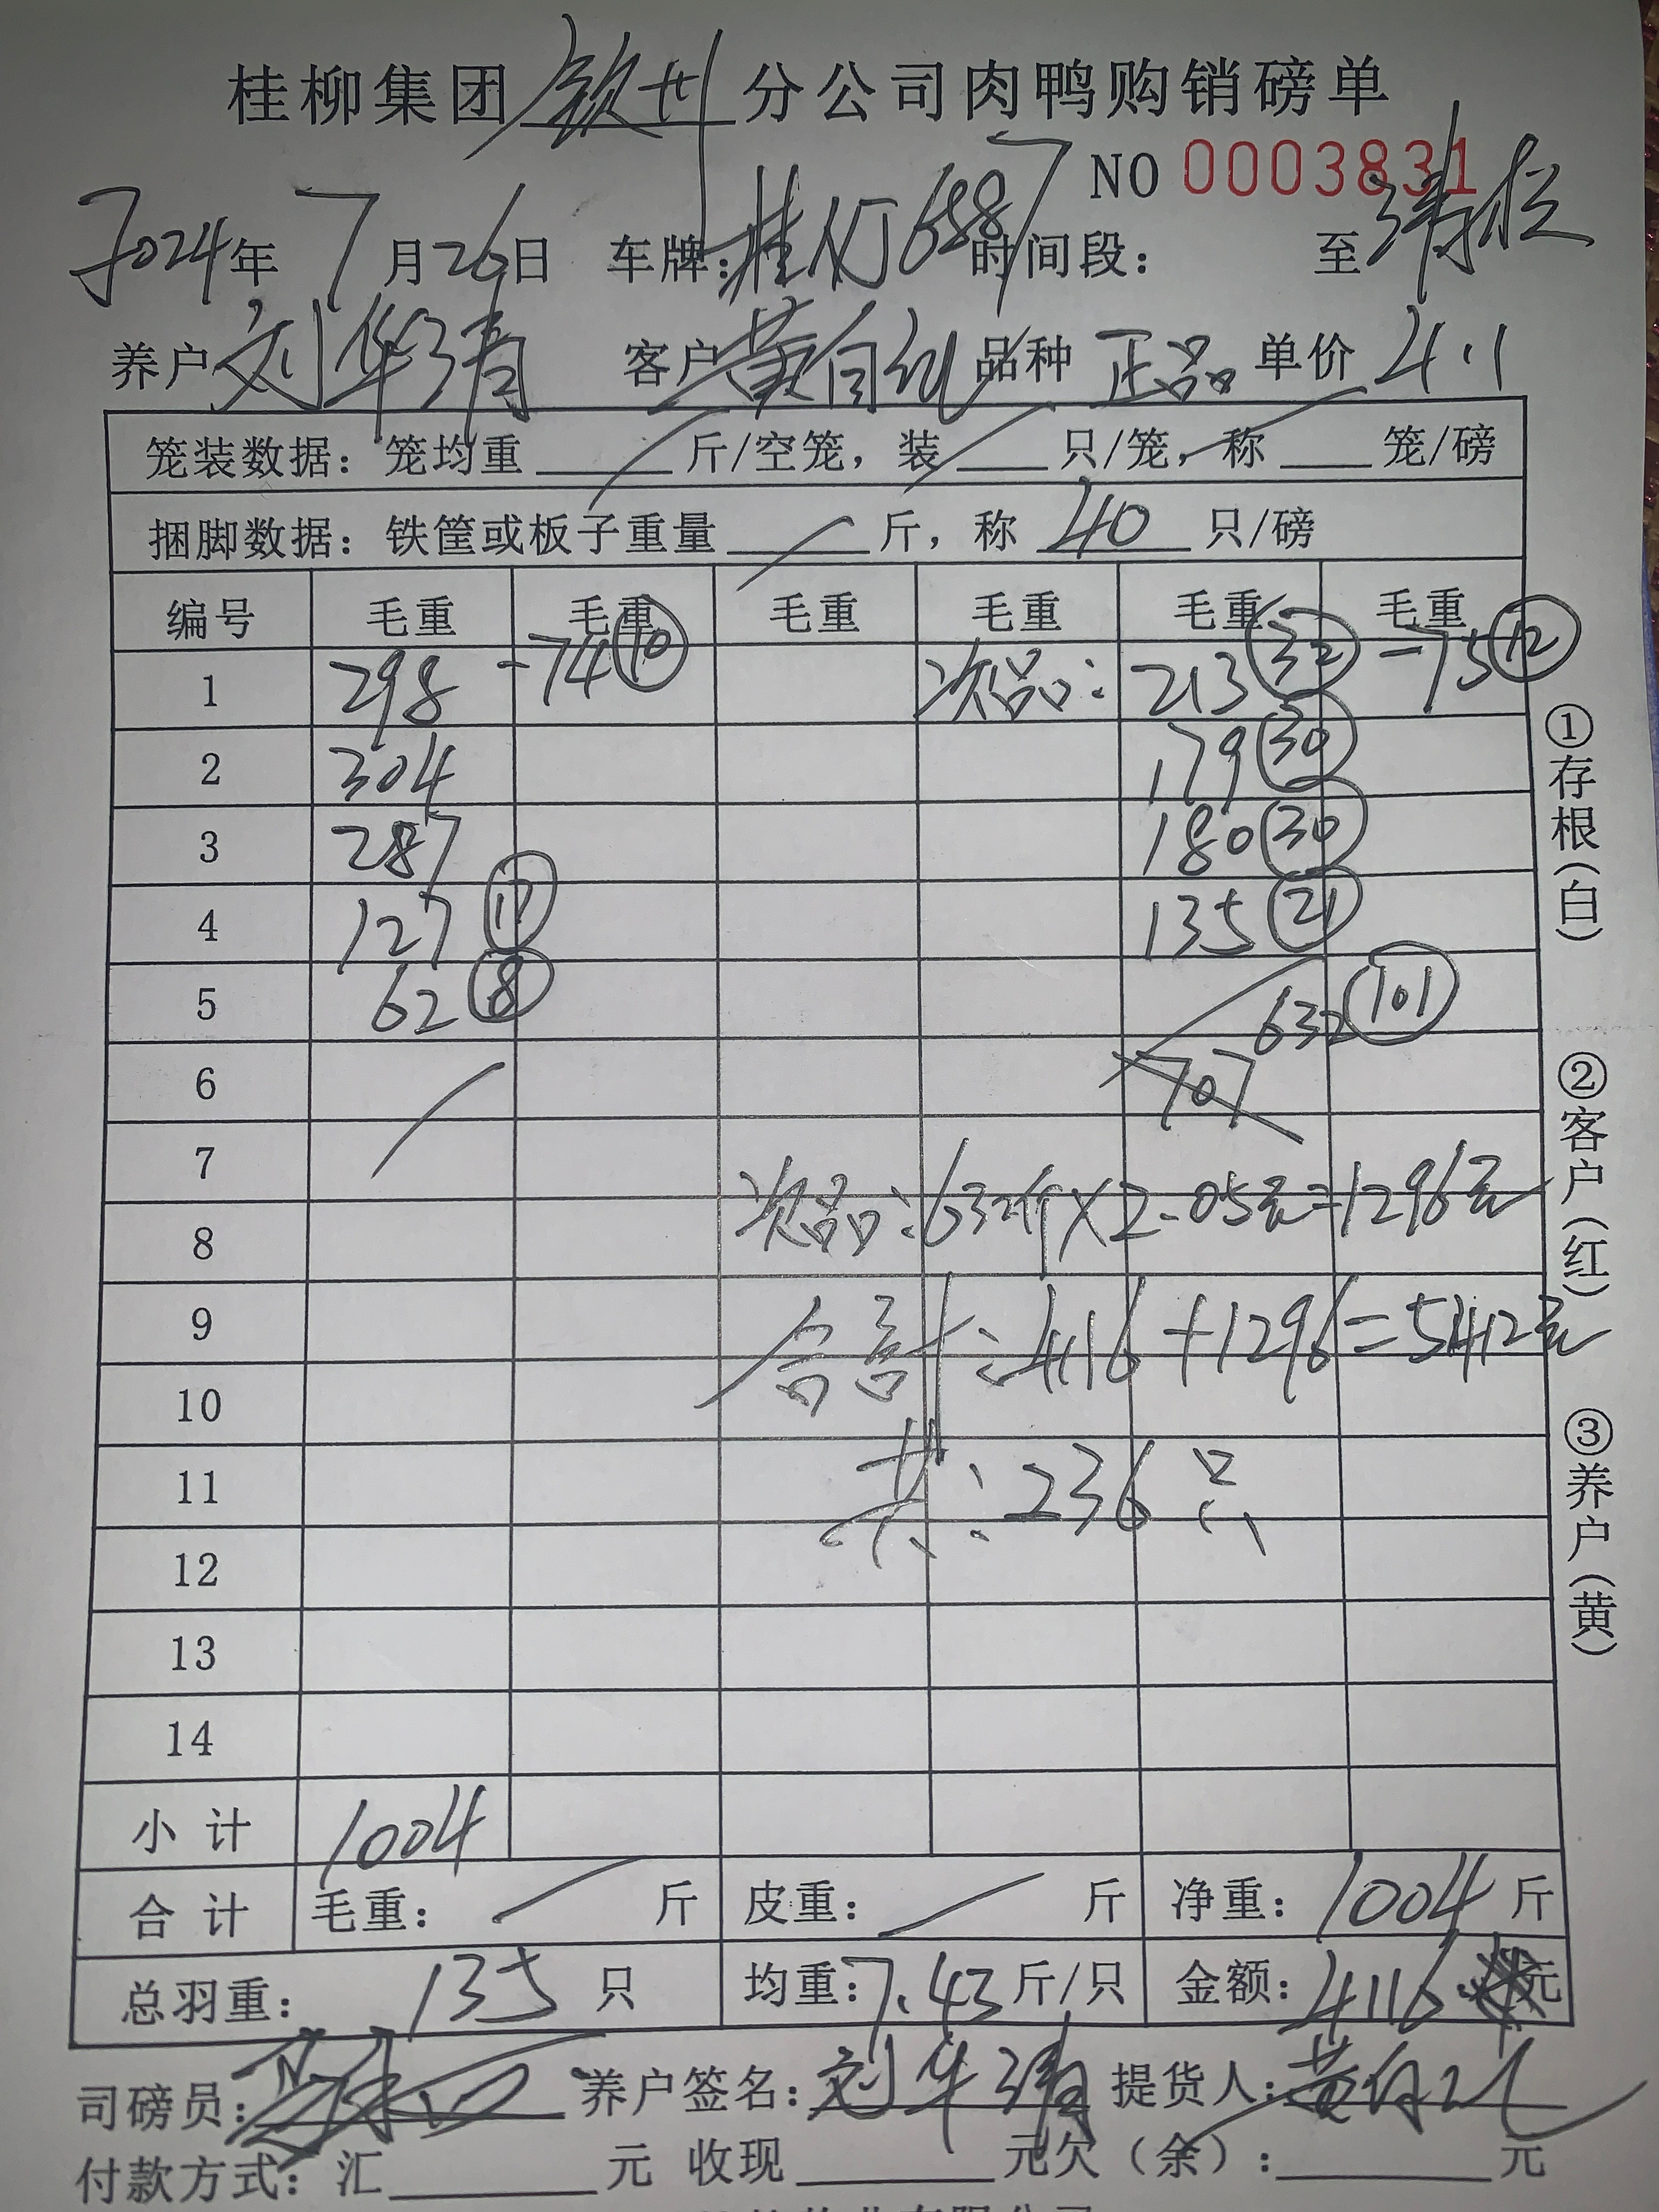 桂柳集团 钦州 分公司肉鸭购销磅单
NO 0003831
2024年 7月26日 车牌: 桂N 6887 时间段: 至 清栏
养户 刘华清 客户 黄自 品种 正品 单价 4.1
笼装数据: 笼均重 斤/空笼, 装 只/笼, 称 笼/磅
捆脚数据: 铁筐或板子重量 斤, 称 40 只/磅
编号 毛重 毛重 毛重 毛重 毛重 毛重
1 298 -74 10 次品: 213 32 -75 12
2 304 179 30
3 287 180 30
4 127 17 135 21
5 62 8 632 101
6 707
7
8 次品:632斤×2.05元=1296元
9 合计:4116+1296=5412元
10
11 共:236只
12
13
14
小计 1004
合计 毛重: 斤 皮重: 斤 净重: 1004 斤
总羽重: 135 只 均重: 7.43 斤/只 金额: 4116. 元
司磅员: 养户签名: 刘华清 提货人: 黄自
付款方式: 汇 元 收现 元欠(余): 元
①存根(白)
②客户(红)
③养户(黄)